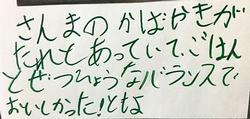 さんまのかばやきが
たれとあっていて、ごはん
とぜつみょうなバランスで
おいしかった！ともよ